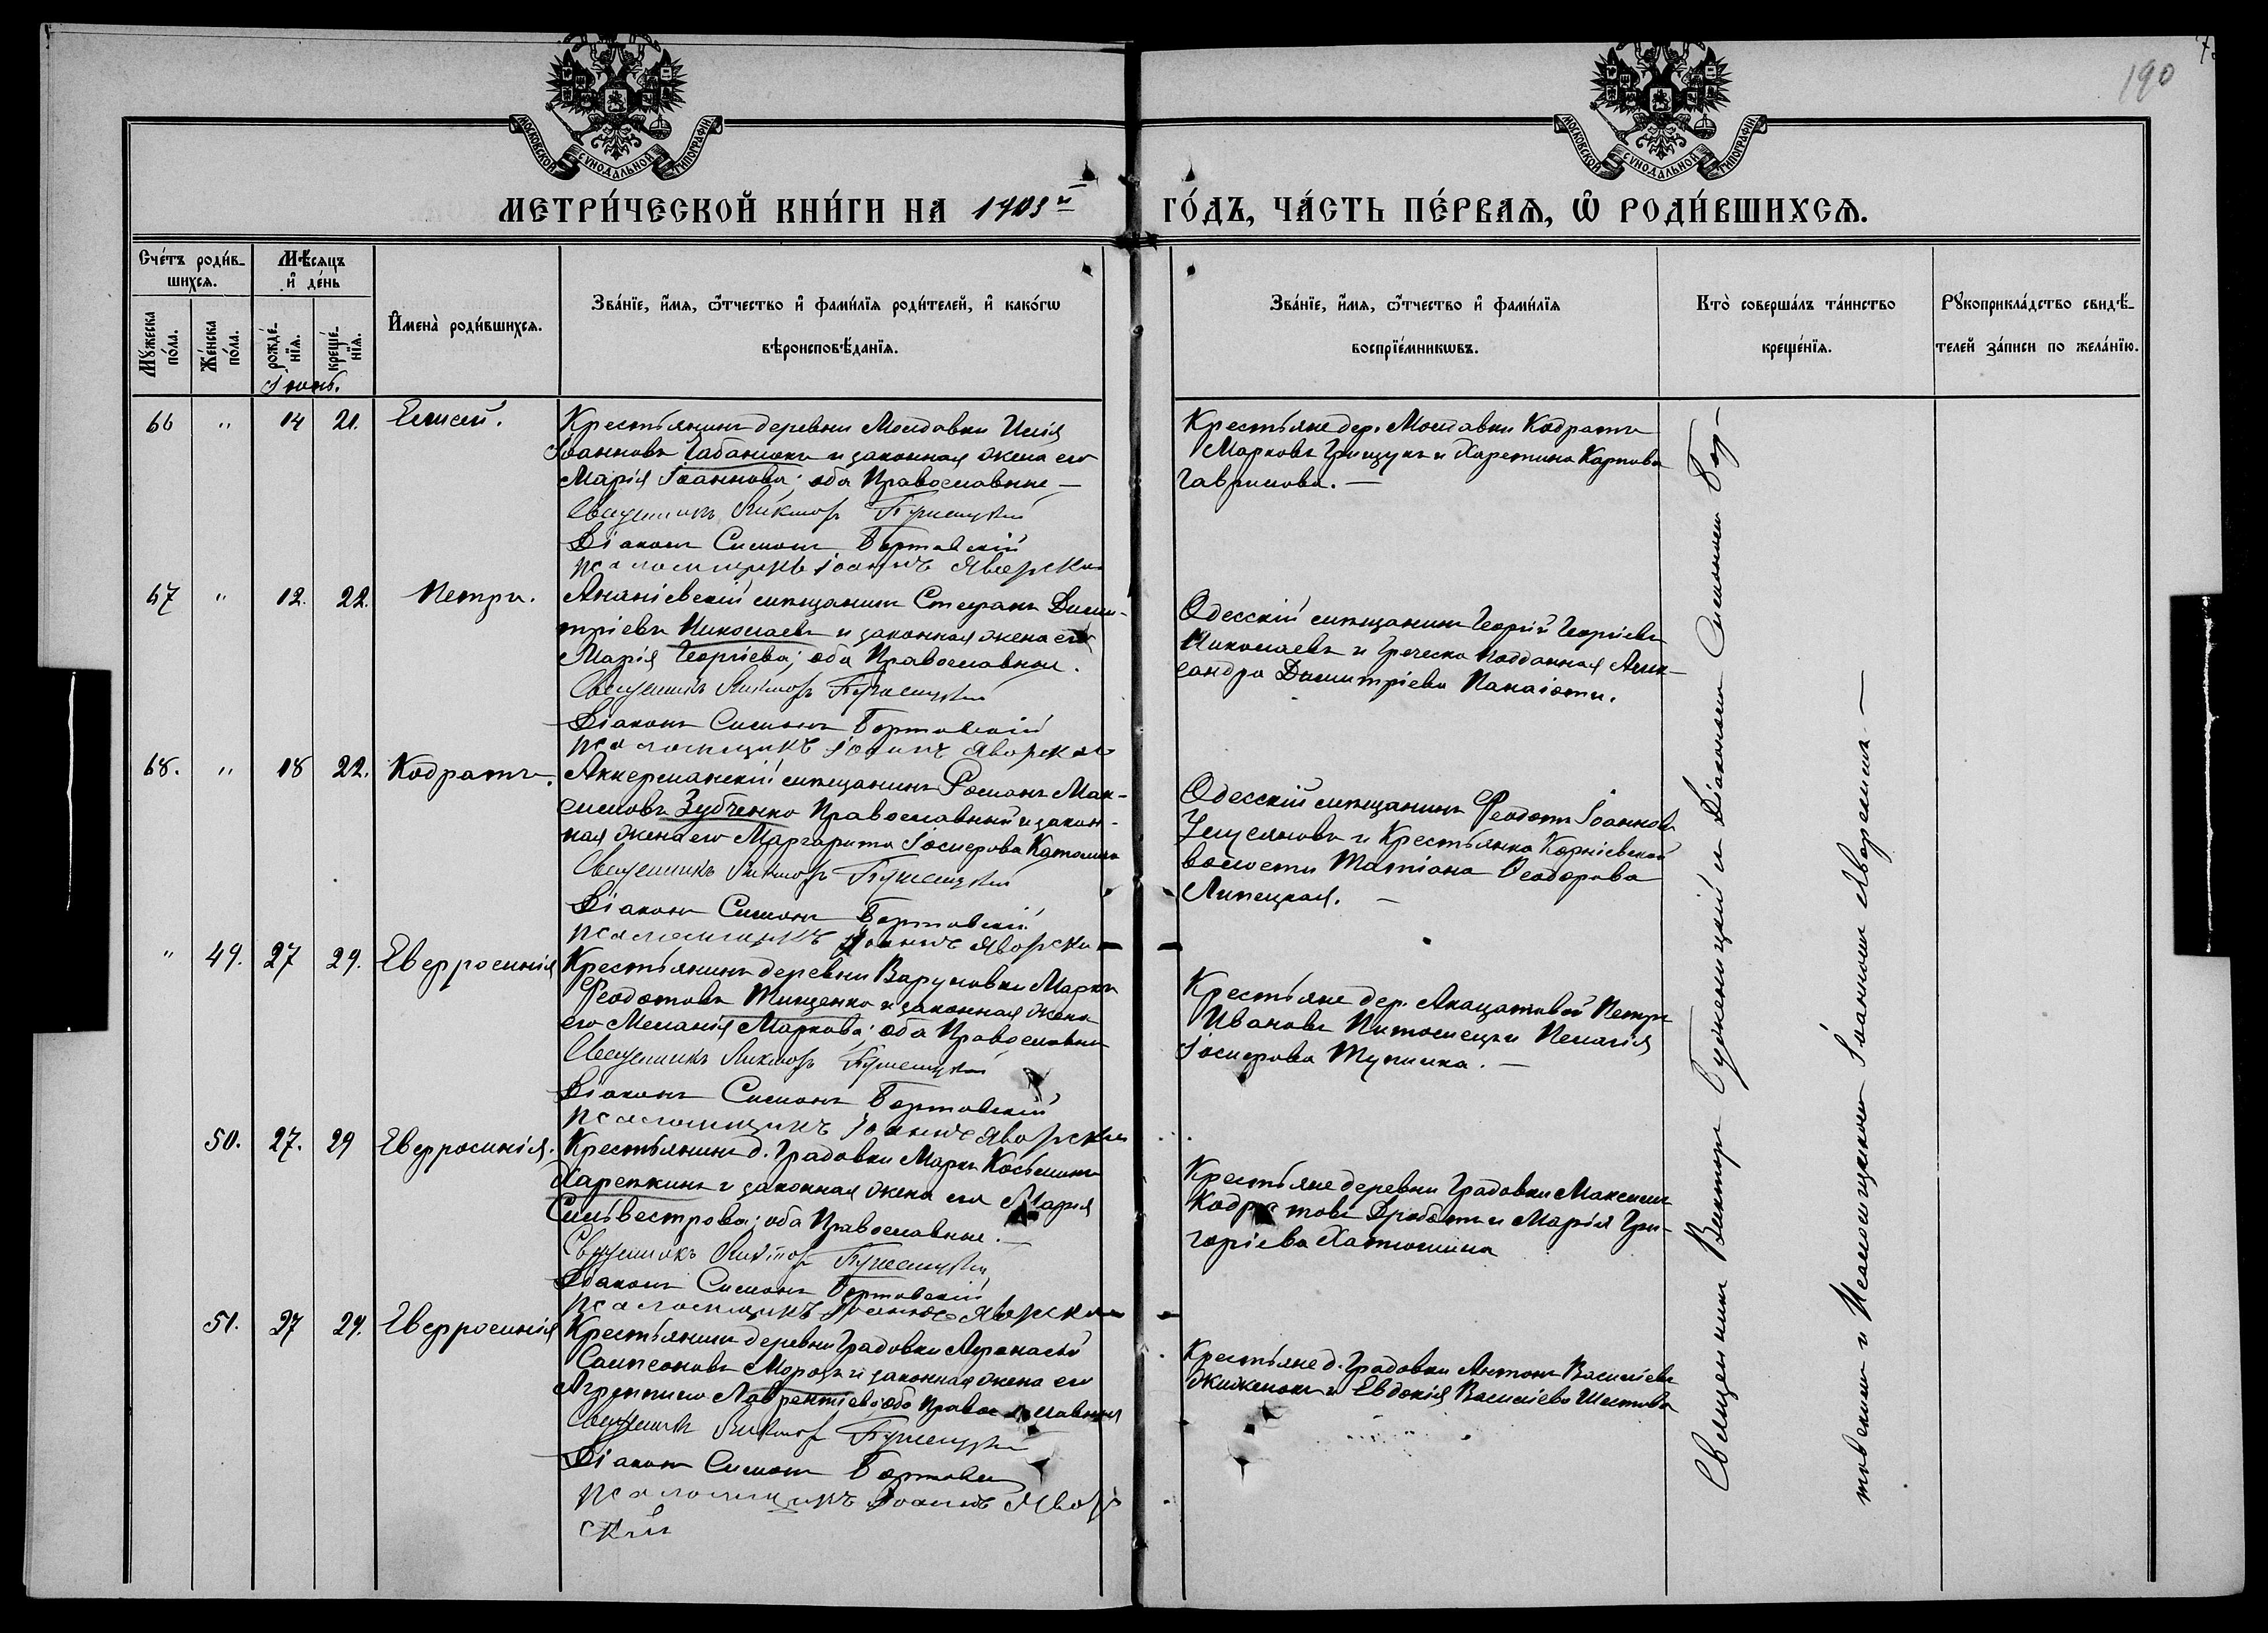 190
МОСКОВСКОЙ СѴНОДАЛЬНОЙ ТИПОГРАФІИ
МОСКОВСКОЙ СѴНОДАЛЬНОЙ ТИПОГРАФІИ
МЕТРИ́ЧЕСКОЙ КНИ́ГИ НА 1903й ГО́ДЪ, ЧА́СТЬ ПЕ́РВАѦ, Ѡ҆ РОДИ́ВШИХСѦ.
Сче́тъ роди́в-
шихсѧ.
Мѣ́сѧцъ
и҆ де́нь
Мꙋ́жеска по́ла.
Же́нска по́ла.
рожде́-нїѧ.
креще́-нїѧ.
И҆мена̀ роди́вшихсѧ.
Зва́нїе, и҆́мѧ, ѻ҆́тчество и҆ фами́лїѧ роди́телей, и҆ како́гѡ
вѣроисповѣ́данїѧ.
Зва́нїе, и҆́мѧ, ѻ҆́тчество и҆ фами́лїѧ
воспрїе́мникѡвъ.
Кто̀ соверша́лъ та́инство
креще́нїѧ.
Рꙋкоприкла́дство свидѣ́-
телей за́писи по жела́нїю.
Іюнь.
66 " 14 21. Елисей.
Крестьянинъ деревни Молдавки Илія
Іоанновъ Чабанюкъ и законная жена его
Марія Іоаннова; оба Православные —
Священникъ Викторъ
Діаконъ Симонъ Бортовскій
псаломщикъ Іоаннъ Яворскій
Крестьяне дер. Молдавки Кодратъ
Марковъ Грищукъ и Харитина Карпова
Гаврилова. —
67 " 12. 22. Петръ.
Ананіевскій мѣщанинъ Стефанъ Дими-
тріевъ Николаевъ и законная жена его
Марія Георгіева; оба Православные.
Священникъ Викторъ
Діаконъ Симонъ Бортовскій
псаломщикъ Іоаннъ Яворскій
Одесскій мѣщанинъ Георгій Георгіевъ
Николаевъ и Греческо подданная Алек-
сандра Димитріева Панаіоти.
68. " 18 22. Кодратъ.
Аккерманскій мѣщанинъ Романъ Мак-
симовъ Зубченко Православный и закон-
ная жена его Маргарита Іосифова Католичка
Священникъ Викторъ
Діаконъ Симонъ Бортовскій
псаломщикъ Іоаннъ Яворскій
Одесскій мѣщанинъ Ѳеодотъ Іоанновъ
и Крестьянка Корніевской
волости Татіана Ѳеодорова
Липецкая. —
" 49. 27 29. Евфросинія
Крестьянинъ деревни Варуловки Маркъ
Ѳеодотовъ Тищенко и законная жена
его Меланія Маркова; оба Православные
Священникъ Викторъ
Діаконъ Симонъ Бортовскій
псаломщикъ Іоаннъ Яворскій
Крестьяне дер. Акацатовой Петръ
Ивановъ и Пелагія
Іосифова Тупчика. —
50. 27. 29 Евфросинія.
Крестьянинъ д. Градовки Маркъ Косьминъ
Карепкинъ и законная жена его Марія
Сильвестрова; оба Православные. —
Священникъ Викторъ
Діаконъ Симонъ Бортовскій
псаломщикъ Іоаннъ Яворскій
Крестьяне деревни Градовки Максимъ
Кодратовъ и Марія Гри-
горіева
51. 27 29. Евфросинія
Крестьянинъ деревни Градовки Афанасій
Сампсоновъ Морозъ и законная жена его
Агриппина Лаврентіева; оба Православные
Священникъ Викторъ
Діаконъ Симонъ Бортовскій
псаломщикъ Іоаннъ Явор
скій
Крестьяне д. Градовки Антонъ Василіевъ
и Евдокія Василіева Шестова
Священникъ Викторъ и Діаконъ Симономъ Бор-
товскимъ и Псаломщикомъ Іоанномъ Яворскимъ —